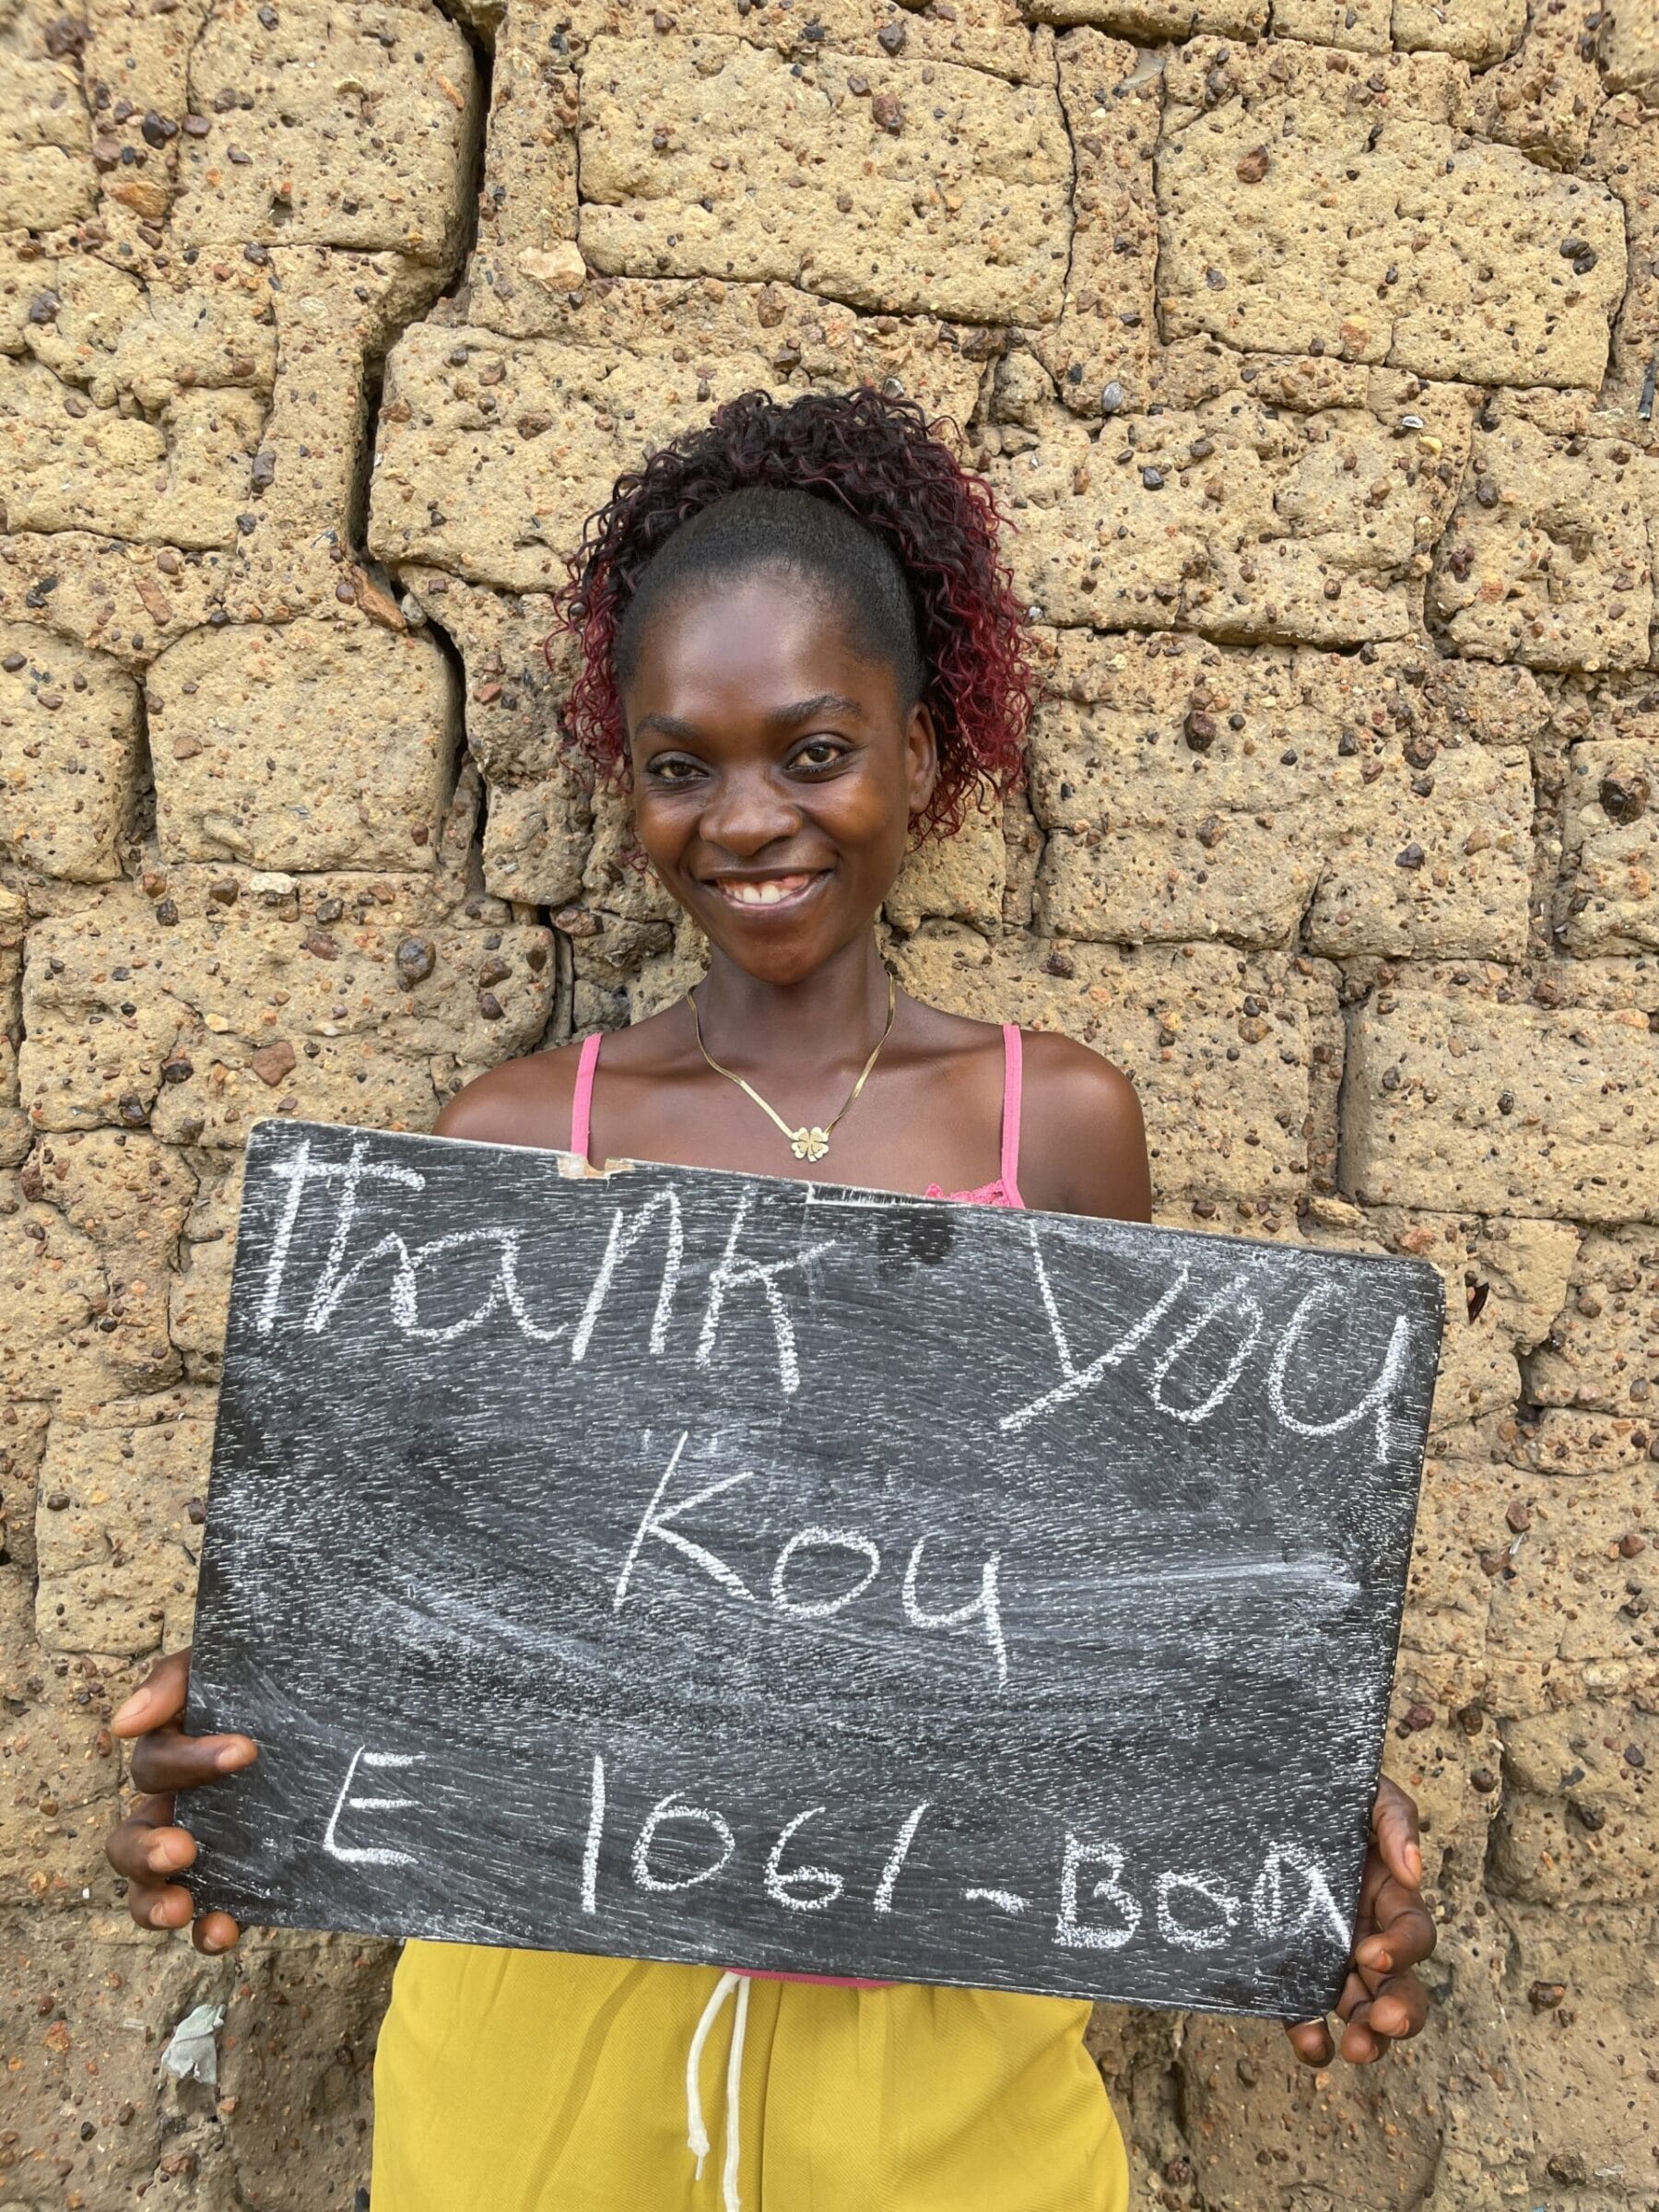 Thank You
Koy
E 1061-BOA